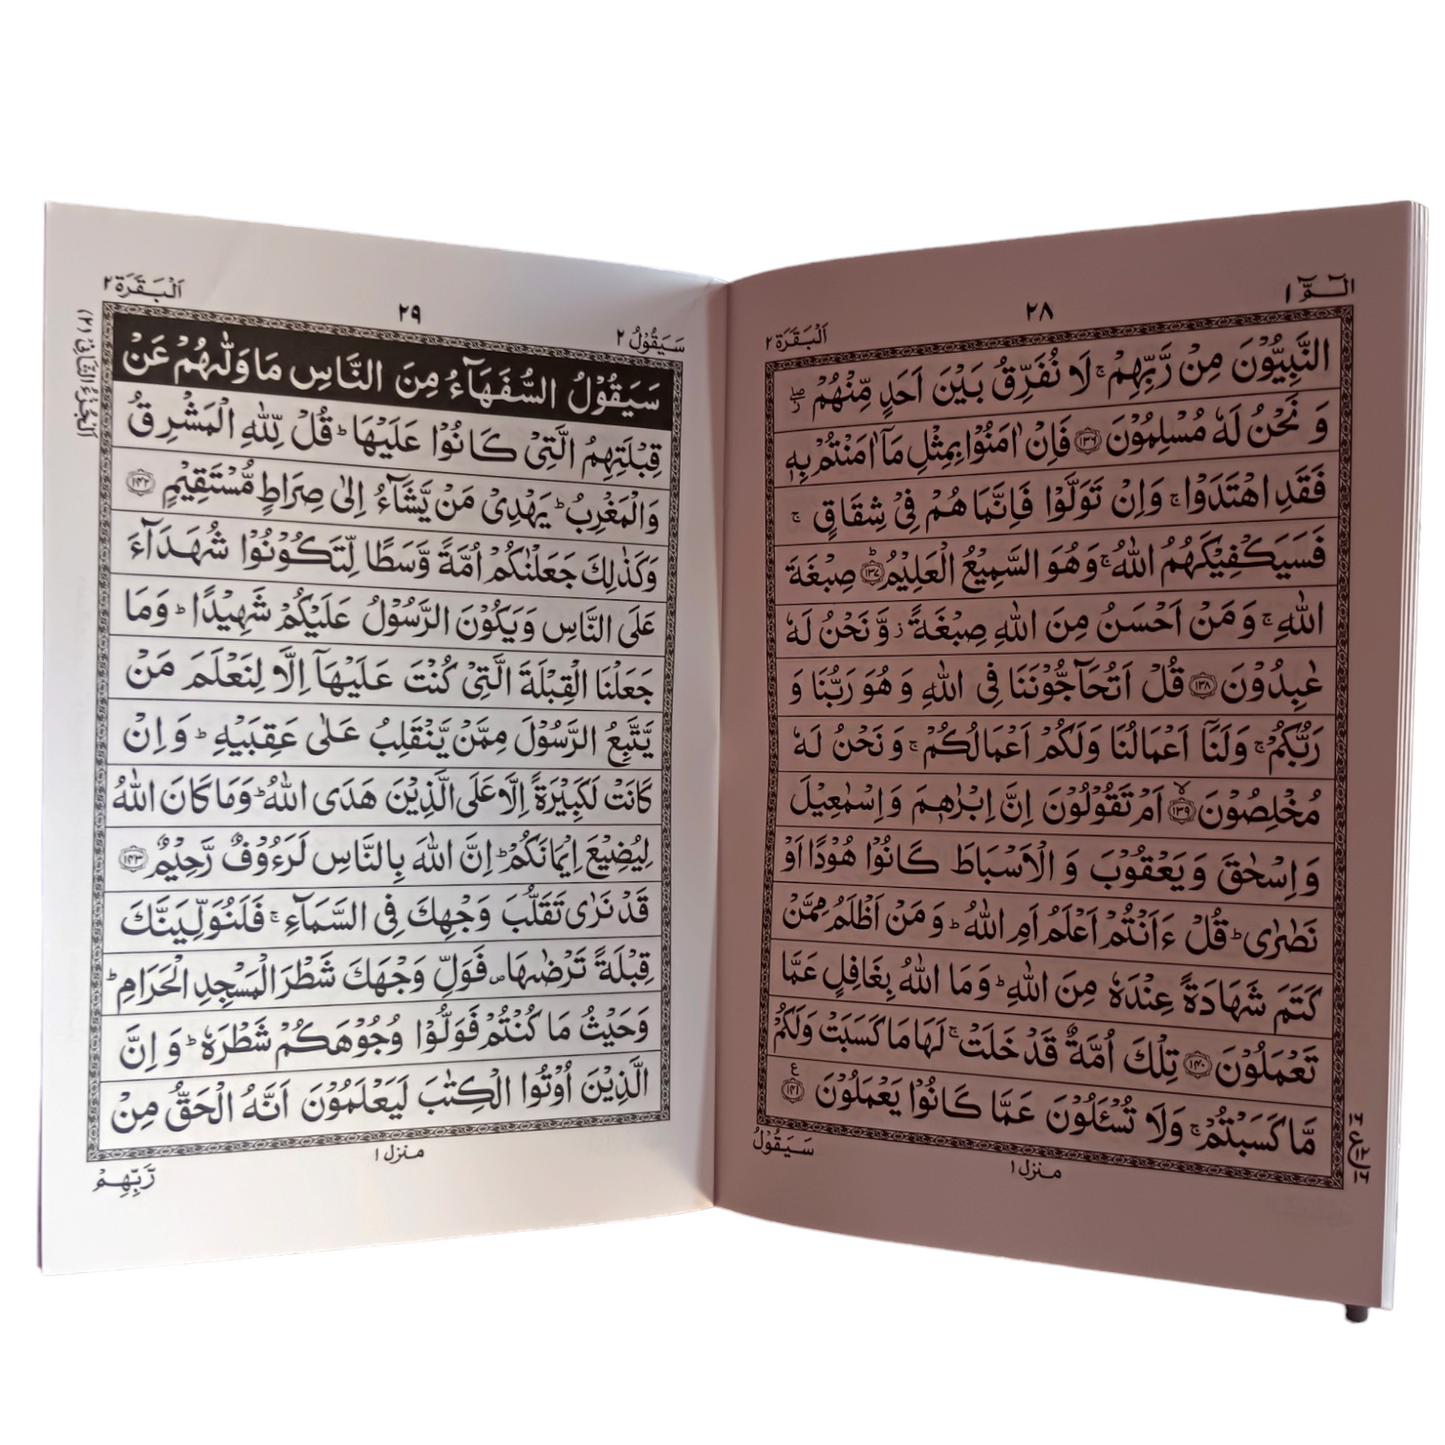 الٓمّٓ ١
٢٨
اَلْبَقَرَة ٢
النَّبِيُّوْنَ مِنْ رَّبِّهِمْ ۚ لَا نُفَرِّقُ بَيْنَ اَحَدٍ مِّنْهُمْ ۖز
وَ نَحْنُ لَهٗ مُسْلِمُوْنَ ﴿١٣٦﴾ فَاِنْ اٰمَنُوْا بِمِثْلِ مَآ اٰمَنْتُمْ بِهٖ
فَقَدِ اهْتَدَوْا ۚ وَاِنْ تَوَلَّوْا فَاِنَّمَا هُمْ فِيْ شِقَاقٍ ۚ
فَسَيَكْفِيْكَهُمُ اللّٰهُ ۚ وَهُوَ السَّمِيْعُ الْعَلِيْمُ ؕ﴿١٣٧﴾ صِبْغَةَ
اللّٰهِ ۚ وَ مَنْ اَحْسَنُ مِنَ اللّٰهِ صِبْغَةً ز وَّ نَحْنُ لَهٗ
عٰبِدُوْنَ ﴿١٣٨﴾ قُلْ اَتُحَآجُّوْنَنَا فِي اللّٰهِ وَ هُوَ رَبُّنَا وَ
رَبُّكُمْ ۚ وَلَنَآ اَعْمَالُنَا وَلَكُمْ اَعْمَالُكُمْ ۚ وَ نَحْنُ لَهٗ
مُخْلِصُوْنَ ۙ﴿١٣٩﴾ اَمْ تَقُوْلُوْنَ اِنَّ اِبْرٰهٖمَ وَ اِسْمٰعِيْلَ
وَ اِسْحٰقَ وَ يَعْقُوْبَ وَ الْاَسْبَاطَ كَانُوْا هُوْدًا اَوْ
نَصٰرٰى ؕ قُلْ ءَاَنْتُمْ اَعْلَمُ اَمِ اللّٰهُ ؕ وَ مَنْ اَظْلَمُ مِمَّنْ
كَتَمَ شَهَادَةً عِنْدَهٗ مِنَ اللّٰهِ ؕ وَ مَا اللّٰهُ بِغَافِلٍ عَمَّا
تَعْمَلُوْنَ ﴿١٤٠﴾ تِلْكَ اُمَّةٌ قَدْ خَلَتْ ۚ لَهَا مَا كَسَبَتْ وَلَكُمْ
مَّا كَسَبْتُمْ ۚ وَلَا تُسْـَٔلُوْنَ عَمَّا كَانُوْا يَعْمَلُوْنَ ﴿١٤١﴾ ع
١٦
ع ١٢
١٦
منزل ١
سَيَقُوْلُ
سَيَقُوْلُ ٢
٢٩
اَلْبَقَرَة ٢
اَلْجُزْءُ الثَّانِيْ (٢)
سَيَقُوْلُ السُّفَهَآءُ مِنَ النَّاسِ مَا وَلّٰىهُمْ عَنْ
قِبْلَتِهِمُ الَّتِيْ كَانُوْا عَلَيْهَا ؕ قُلْ لِّلّٰهِ الْمَشْرِقُ
وَالْمَغْرِبُ ؕ يَهْدِيْ مَنْ يَّشَآءُ اِلٰى صِرَاطٍ مُّسْتَقِيْمٍ ﴿١٤٢﴾
وَكَذٰلِكَ جَعَلْنٰكُمْ اُمَّةً وَّسَطًا لِّتَكُوْنُوْا شُهَدَآءَ
عَلَى النَّاسِ وَيَكُوْنَ الرَّسُوْلُ عَلَيْكُمْ شَهِيْدًا ؕ وَمَا
جَعَلْنَا الْقِبْلَةَ الَّتِيْ كُنْتَ عَلَيْهَآ اِلَّا لِنَعْلَمَ مَنْ
يَّتَّبِعُ الرَّسُوْلَ مِمَّنْ يَّنْقَلِبُ عَلٰى عَقِبَيْهِ ؕ وَ اِنْ
كَانَتْ لَكَبِيْرَةً اِلَّا عَلَى الَّذِيْنَ هَدَى اللّٰهُ ؕ وَمَا كَانَ اللّٰهُ
لِيُضِيْعَ اِيْمَانَكُمْ ؕ اِنَّ اللّٰهَ بِالنَّاسِ لَرَءُوْفٌ رَّحِيْمٌ ﴿١٤٣﴾
قَدْ نَرٰى تَقَلُّبَ وَجْهِكَ فِي السَّمَآءِ ۚ فَلَنُوَلِّيَنَّكَ
قِبْلَةً تَرْضٰىهَا ص فَوَلِّ وَجْهَكَ شَطْرَ الْمَسْجِدِ الْحَرَامِ ؕ
وَحَيْثُ مَا كُنْتُمْ فَوَلُّوْا وُجُوْهَكُمْ شَطْرَهٗ ؕ وَ اِنَّ
الَّذِيْنَ اُوْتُوا الْكِتٰبَ لَيَعْلَمُوْنَ اَنَّهُ الْحَقُّ مِنْ
منزل ١
رَّبِّهِمْ